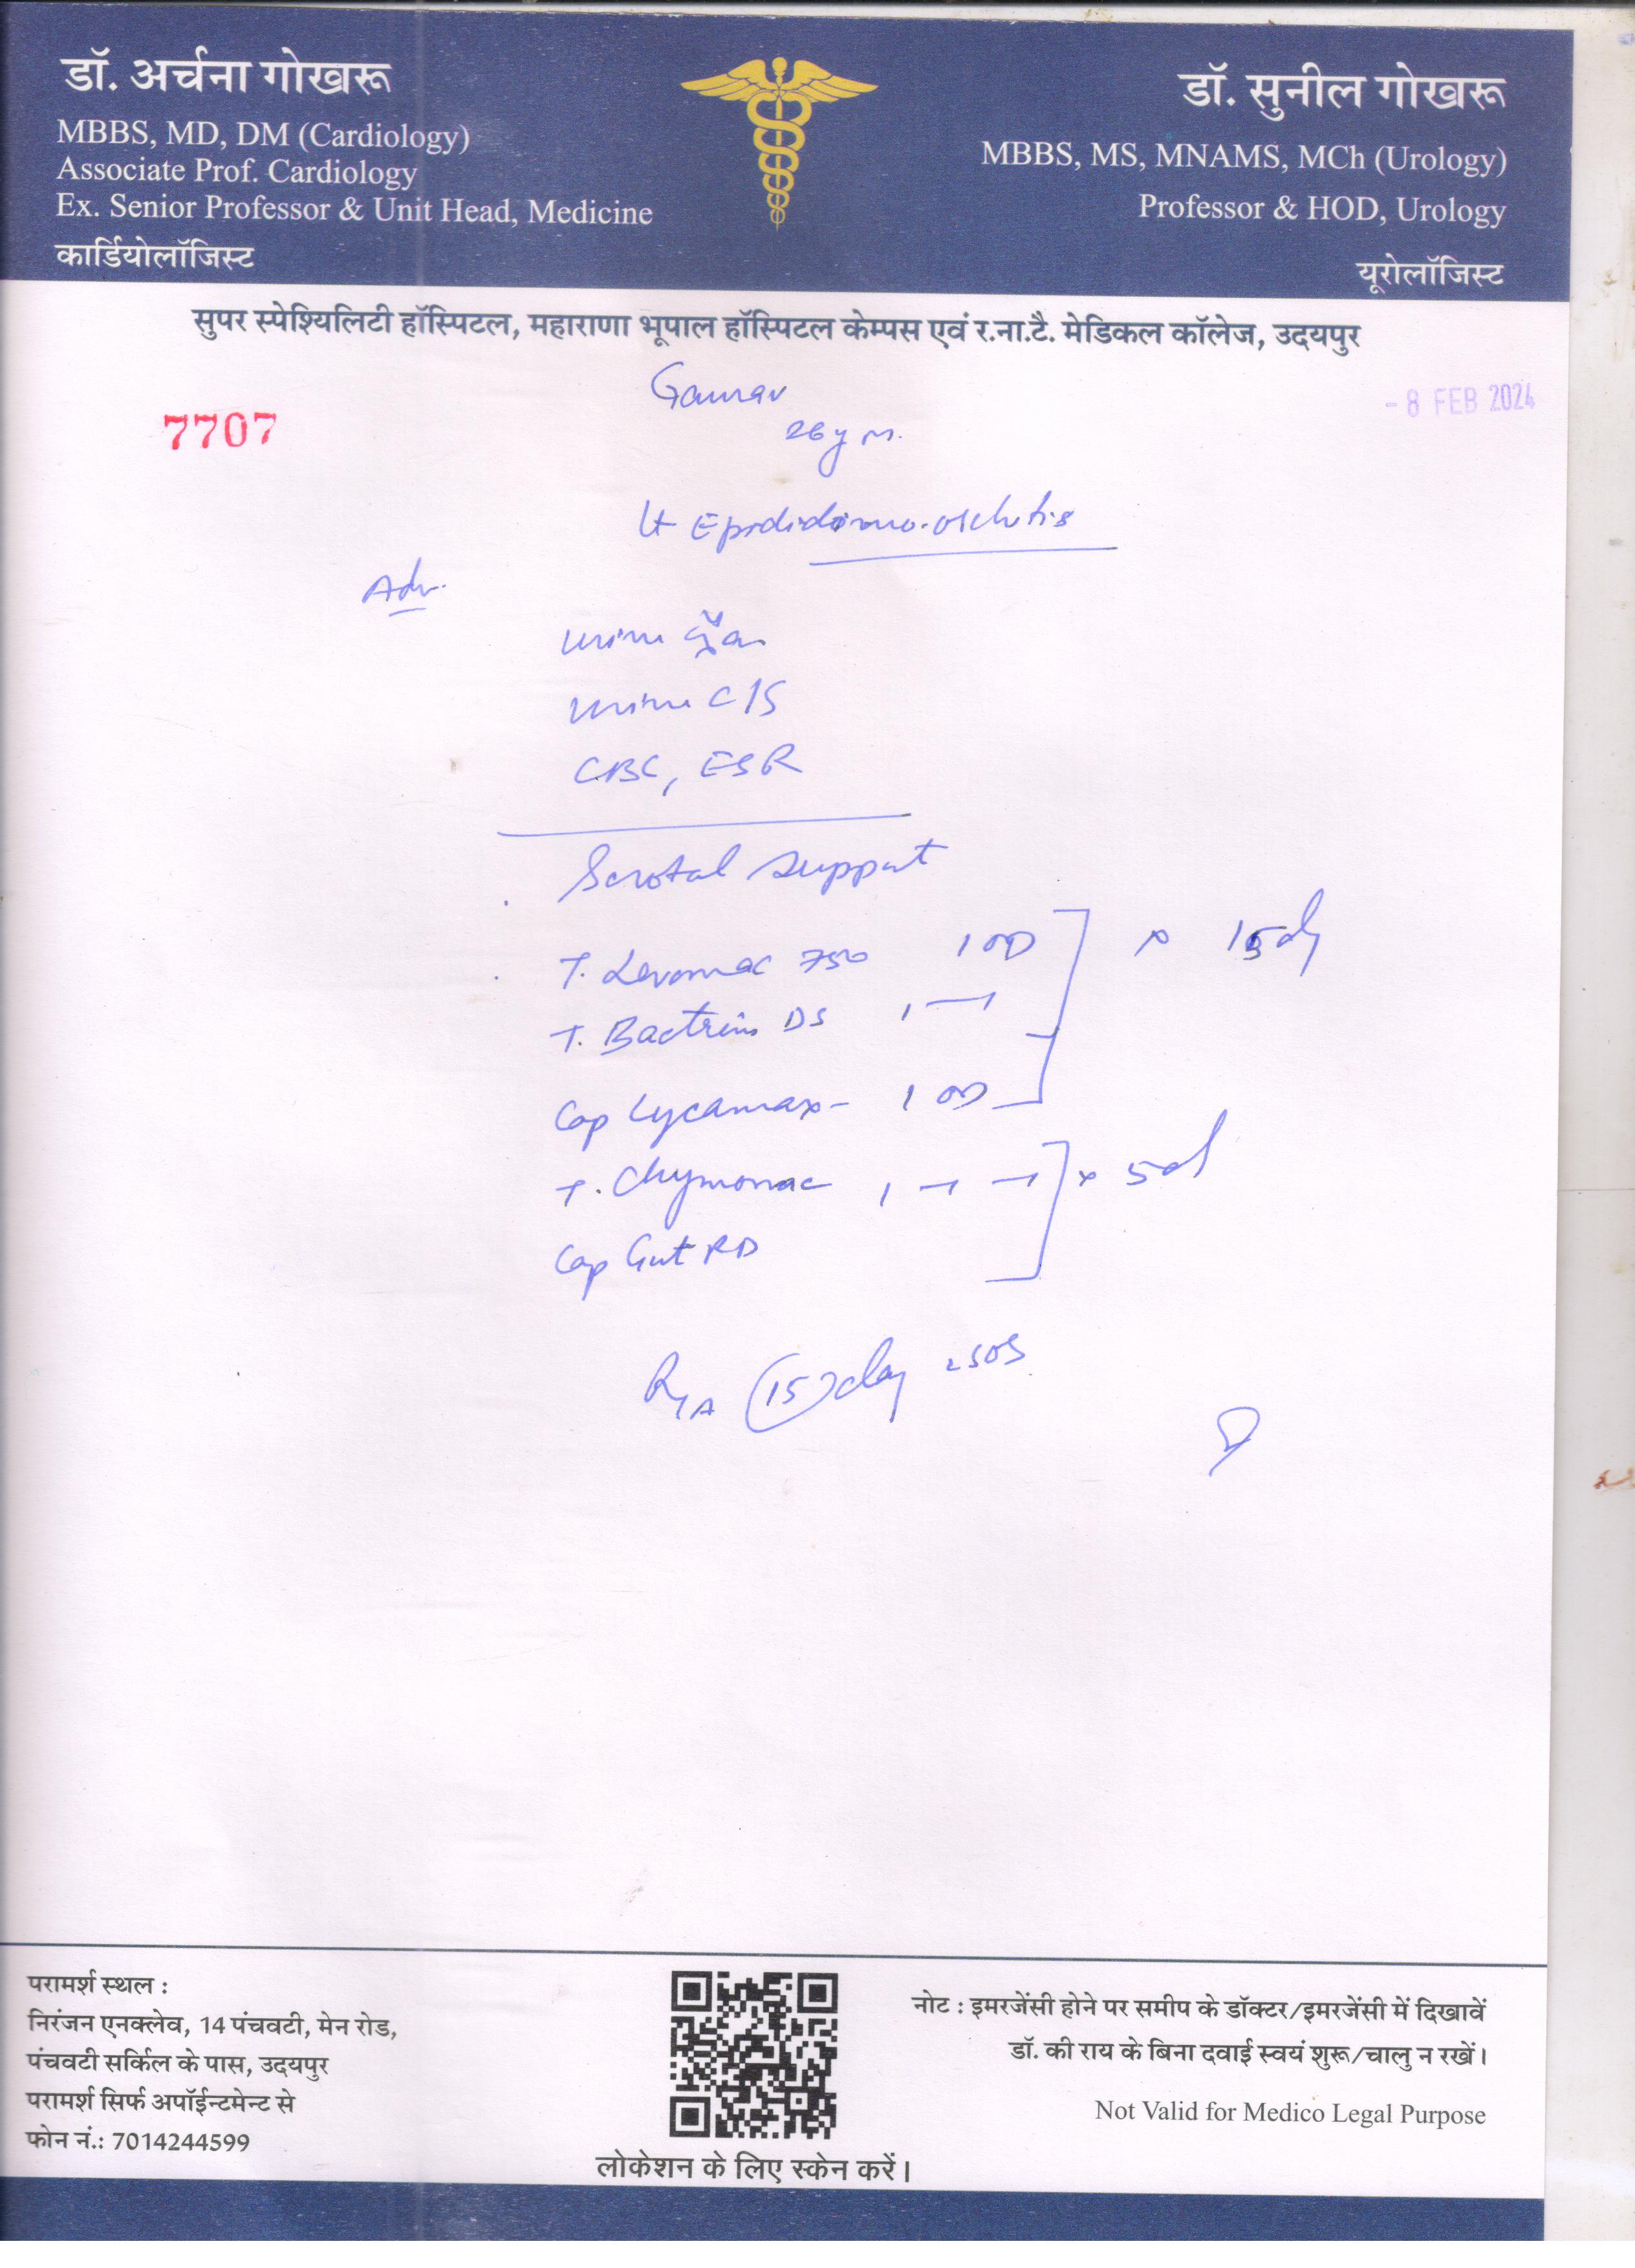 डॉ. अर्चना गोखरू
MBBS, MD, DM (Cardiology)
Associate Prof. Cardiology
Ex. Senior Professor & Unit Head, Medicine
कार्डियोलॉजिस्ट
डॉ. सुनील गोखरू
MBBS, MS, MNAMS, MCh (Urology)
Professor & HOD, Urology
यूरोलॉजिस्ट
सुपर स्पेश्यिलिटी हॉस्पिटल, महाराणा भूपाल हॉस्पिटल केम्पस एवं र.ना.टै. मेडिकल कॉलेज, उदयपुर
7707
- 8 FEB 2024
Gaurav
26 y m.
Lt Epididimo-orchitis
Adv.
urine
urine C/S
CBC, ESR
Scrotal support
T. Levomac 750 1 OD
T. Bactrim DS 1 — 1
x 15 dy
Cap Lycamax - 1 OD
T. Chymonac 1 - 1 - 1 x 5 d
Cap Gut RD
(15) day SOS
परामर्श स्थल :
निरंजन एनक्लेव, 14 पंचवटी, मेन रोड,
पंचवटी सर्किल के पास, उदयपुर
परामर्श सिर्फ अपॉईन्टमेन्ट से
फोन नं.: 7014244599
लोकेशन के लिए स्केन करें।
नोट : इमरजेंसी होने पर समीप के डॉक्टर/इमरजेंसी में दिखावें
डॉ. की राय के बिना दवाई स्वयं शुरू/चालु न रखें।
Not Valid for Medico Legal Purpose